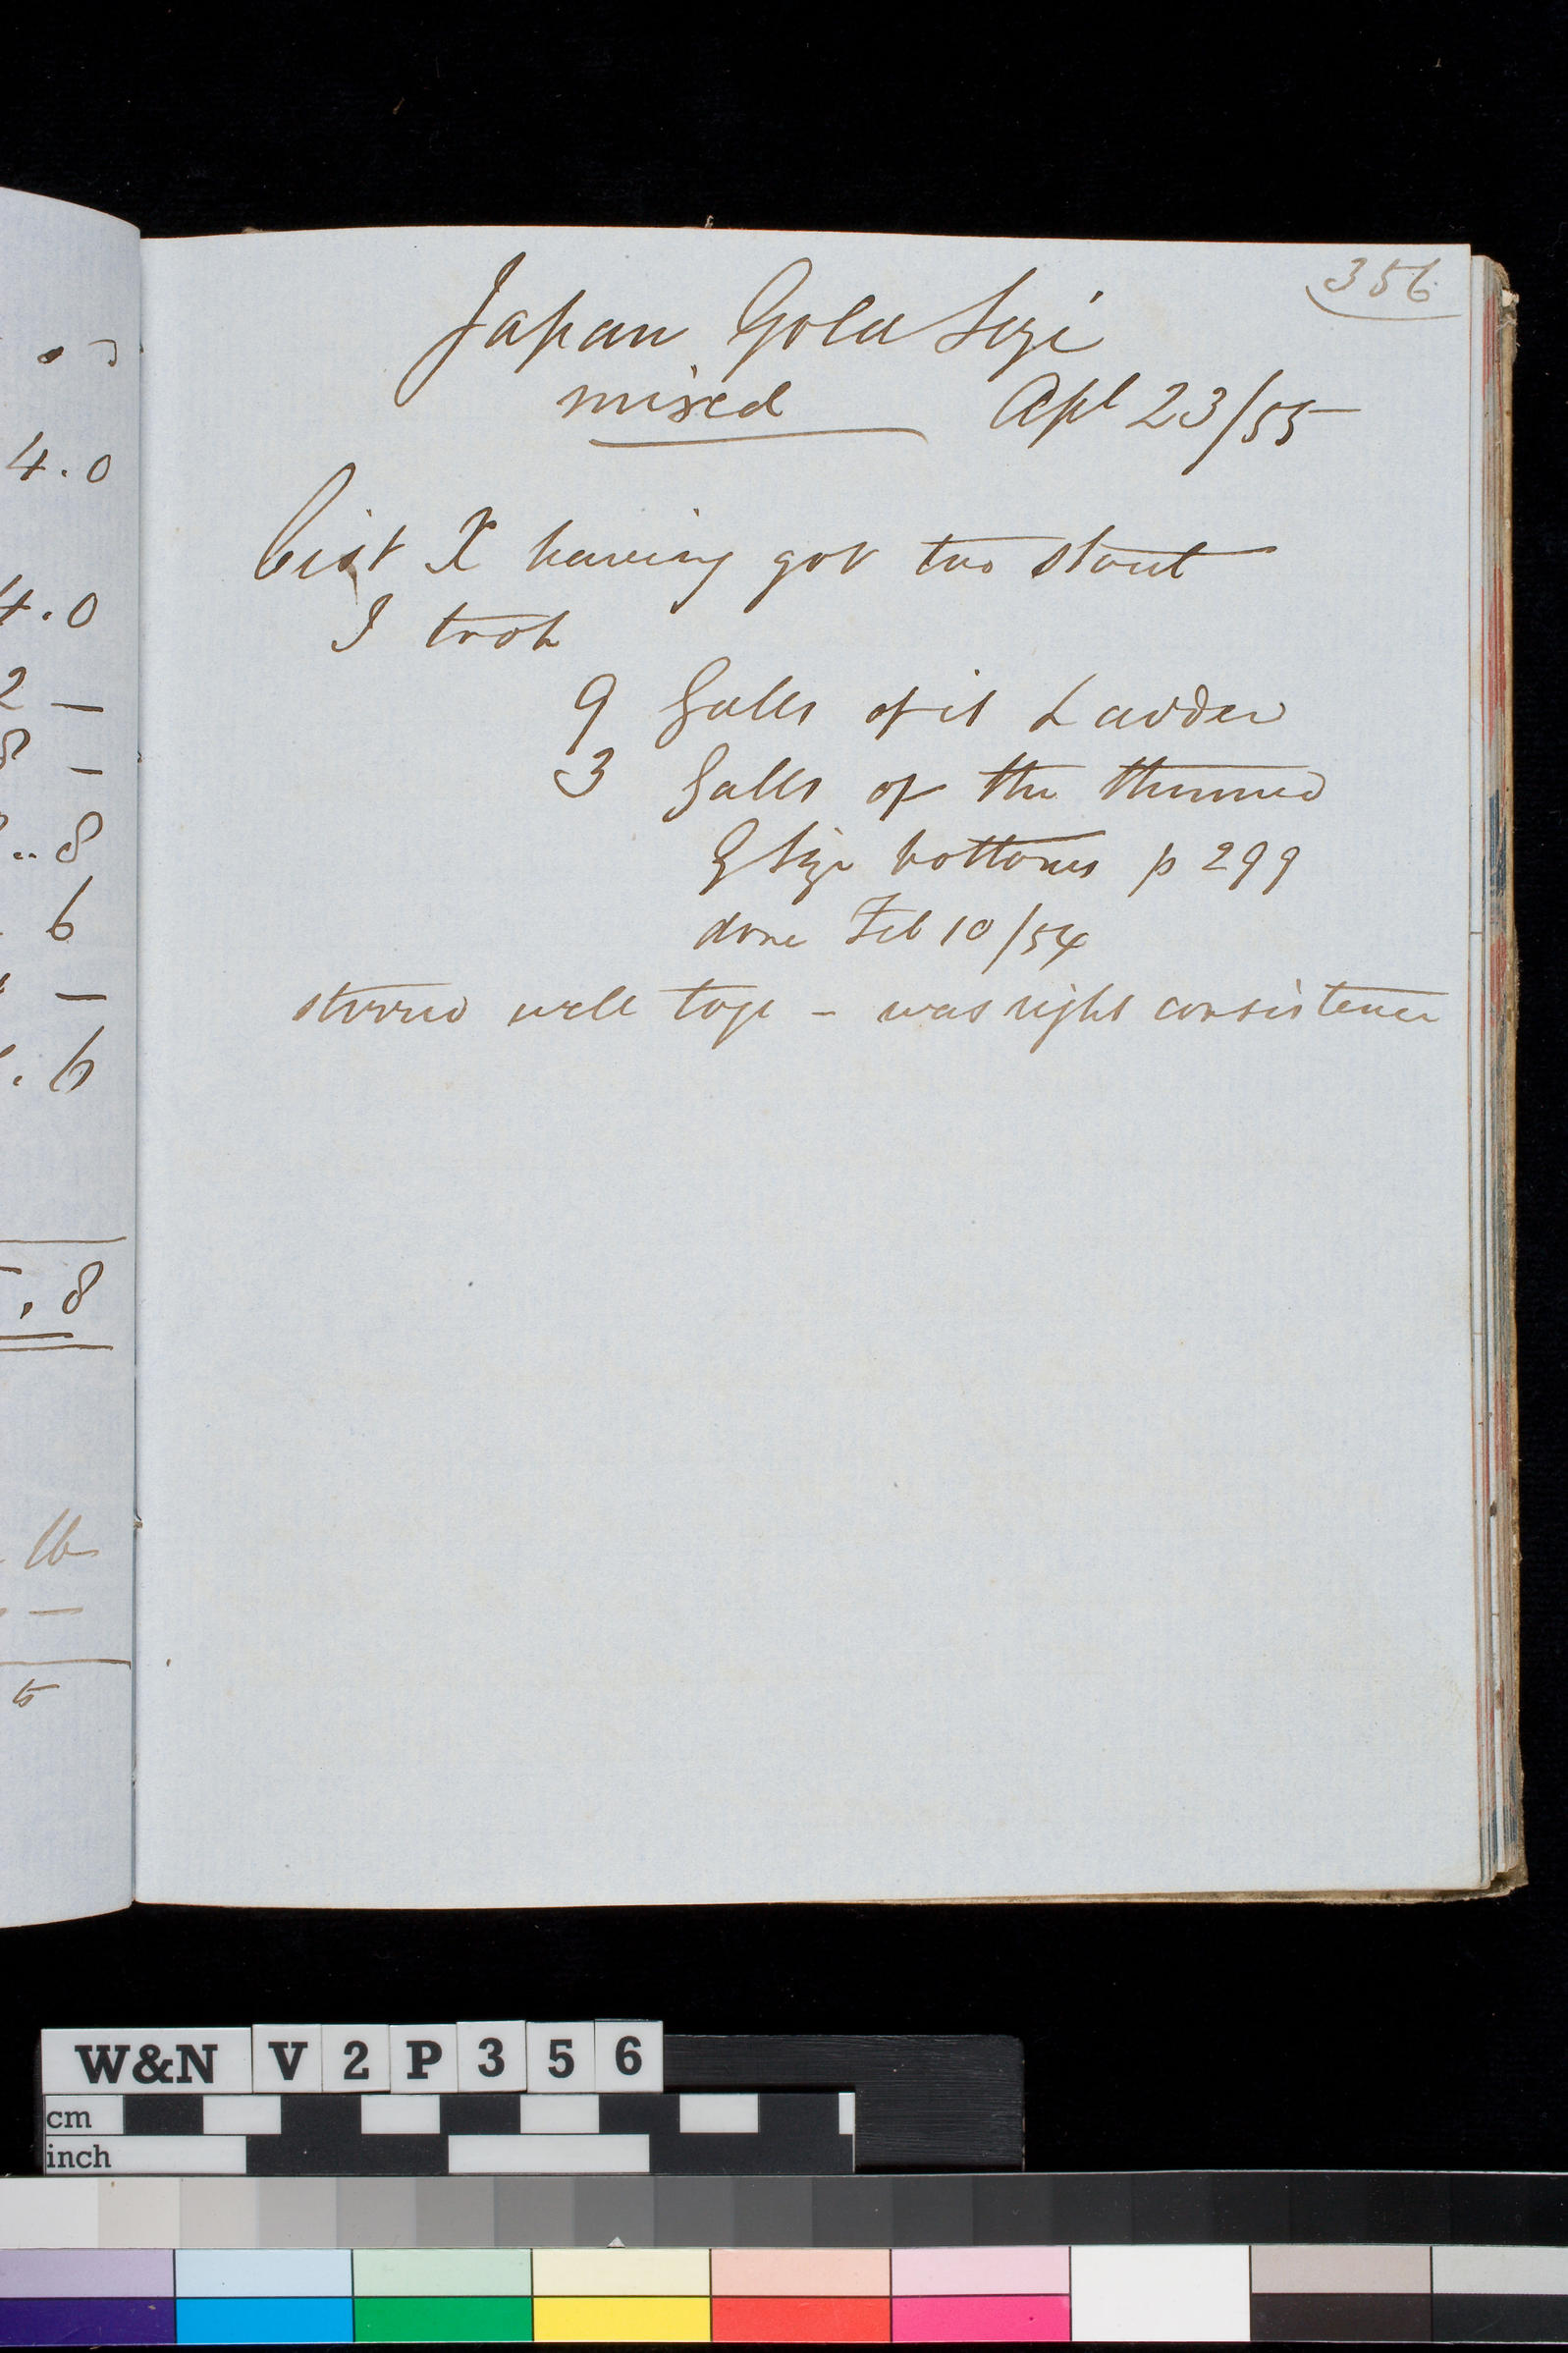 356
Japan Gold Size
mixed Apl 23/55
Cist X having got too stout
I took
9 Galls of it & added
3 Galls of the thinned
G Size bottoms p 299
done Feb 10/54
stirred well togr - was right consistence
4.0
4.0
2 —
8
6
—
. 6
. 8
lb
—
W&N V 2 P 3 5 6
cm
inch